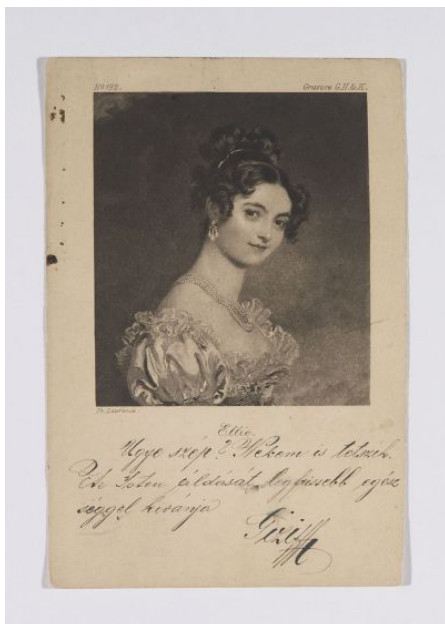 No 192.
Gravure G.H.&K.
Th. Lawrence.
Ellie.
Ugye szép? Nekem is tetszik.
Isten áldását legfrissebb egész
séggel kivánja
Gizi